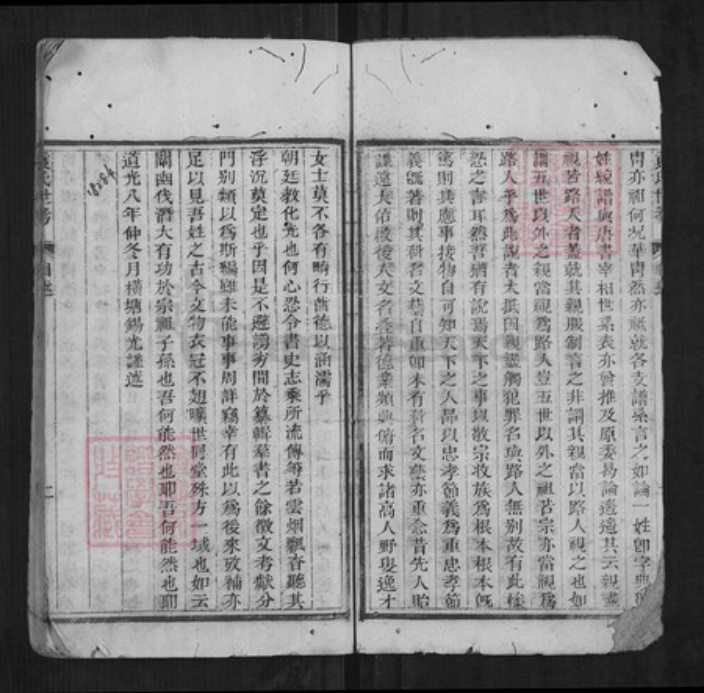 冑亦祖何况華冑然亦祗就各支譜系言之如論一姓卽字典
姓統譜與唐書宰相世系表亦曾推及原委易論遙遙其云親盡
視若路人者蓋就其親服制言之非謂其親當以路人視之也如
謂五世以外之親當視爲路人豈五世以外之祖若宗亦當視爲
路人乎爲此說者大抵因親盡觸犯罪名與路人無別故有此
忿之言耳然吾猶有說焉天下之事以敬宗收族爲根本根本旣
篤則其應事接物自可知天下之人品以忠孝節義爲重忠孝節
義旣著則其科名文藝自重如未有科名文藝亦重念昔先人貽
謀遠大佑啟後人文名者德業類與俯而求諸高人野叟逸才
女士莫不各有畸行舊德以涵濡乎
朝廷教化先也何心忍令書史志乘所流傳等若雲烟飄杳聽其
浮沉莫定也乎因是不避謭劣間於纂輯羣書之餘徵文考獻分
門別類以爲斯編雖未能事事周詳竊幸有此以爲後來攷補亦
足以見吾姓之古今文物衣冠不翅曠世同堂殊方一域也如云
闡幽伐潛大有功於宗祖子孫也吾何能然也耶吾何能然也耶
道光八年仲冬月橫塘錫光謹述
氏世考
自述
二